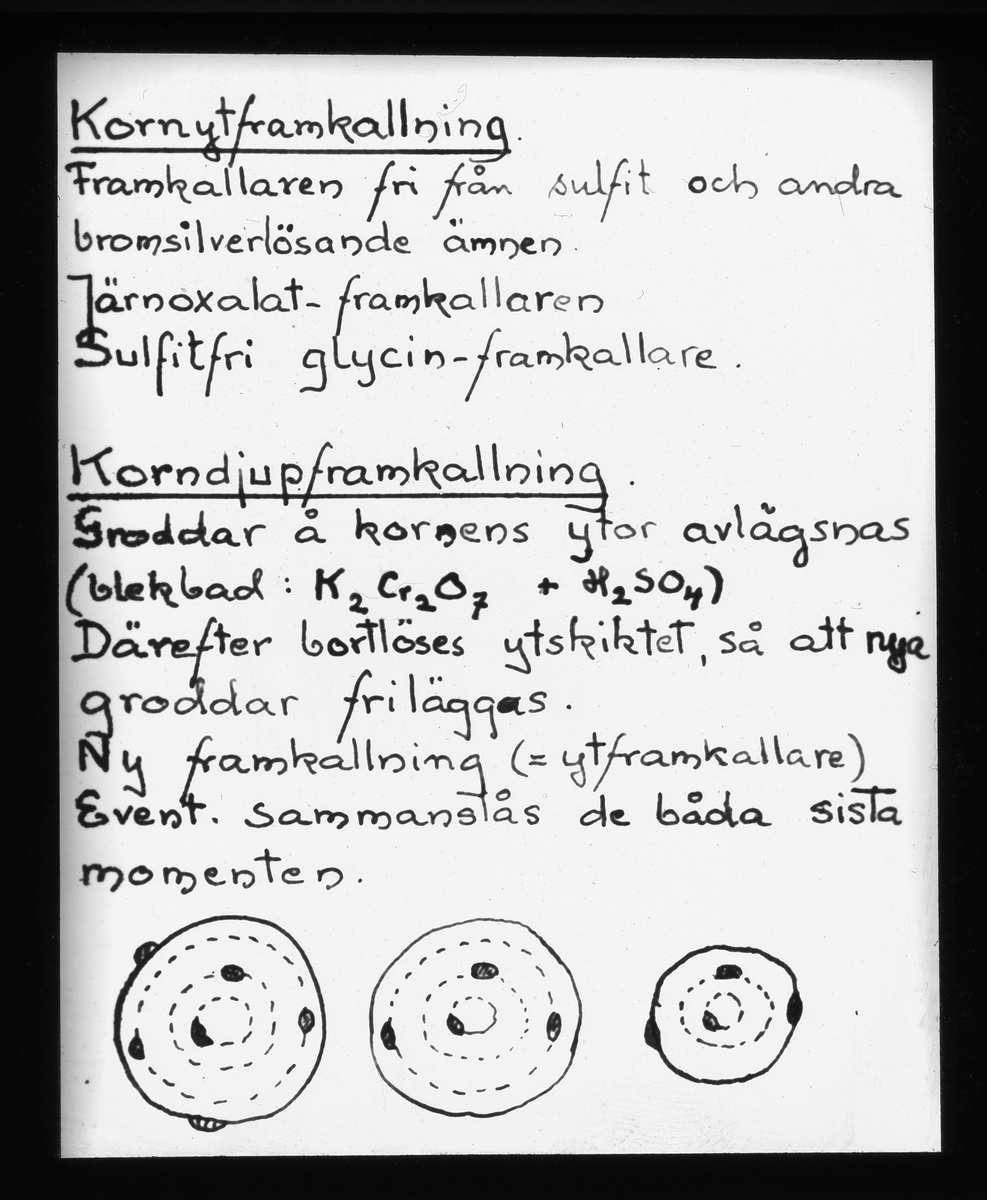 Kornytframkallning.
Framkallaren fri från sulfit och andra
bromsilverlösande ämnen.
Järnoxalat-framkallaren
Sulfitfri glycin-framkallare.
Korndjupframkallning.
Groddar å kornens ytor avlägsnas
(blekbad: K₂Cr₂O₇ + H₂SO₄)
Därefter bortlöses ytskiktet, så att nya
groddar friläggas.
Ny framkallning (= ytframkallare)
Event. sammanslås de båda sista
momenten.